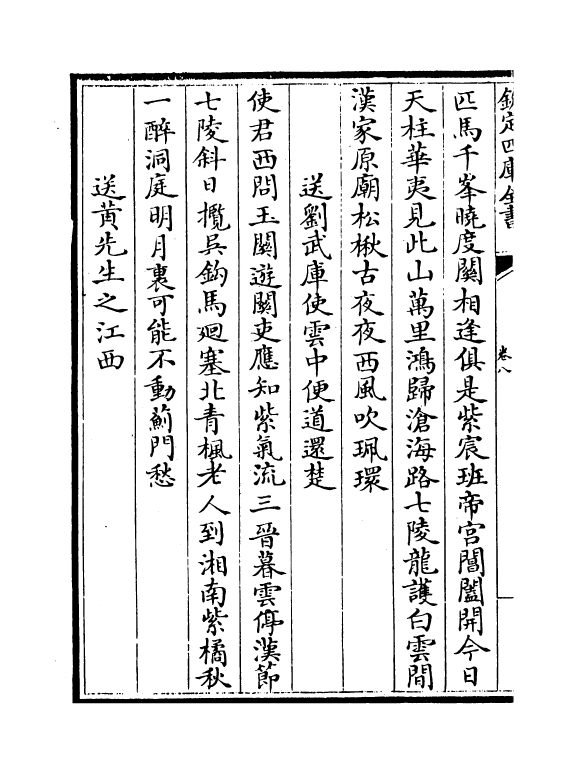 欽定四庫全書
卷八
匹馬千峯曉度關相逢俱是紫宸班帝宮閶闔開今日
天柱華夷見此山萬里鴻歸滄海路七陵龍護白雲間
漢家原廟松楸古夜夜西風吹珮環
送劉武庫使雲中便道還楚
使君西問玉關遊關吏應知紫氣流三晉暮雲停漢節
七陵斜日攬吳鈎馬廻塞北青楓老人到湘南紫橘秋
一醉洞庭明月裏可能不動薊門愁
送黃先生之江西